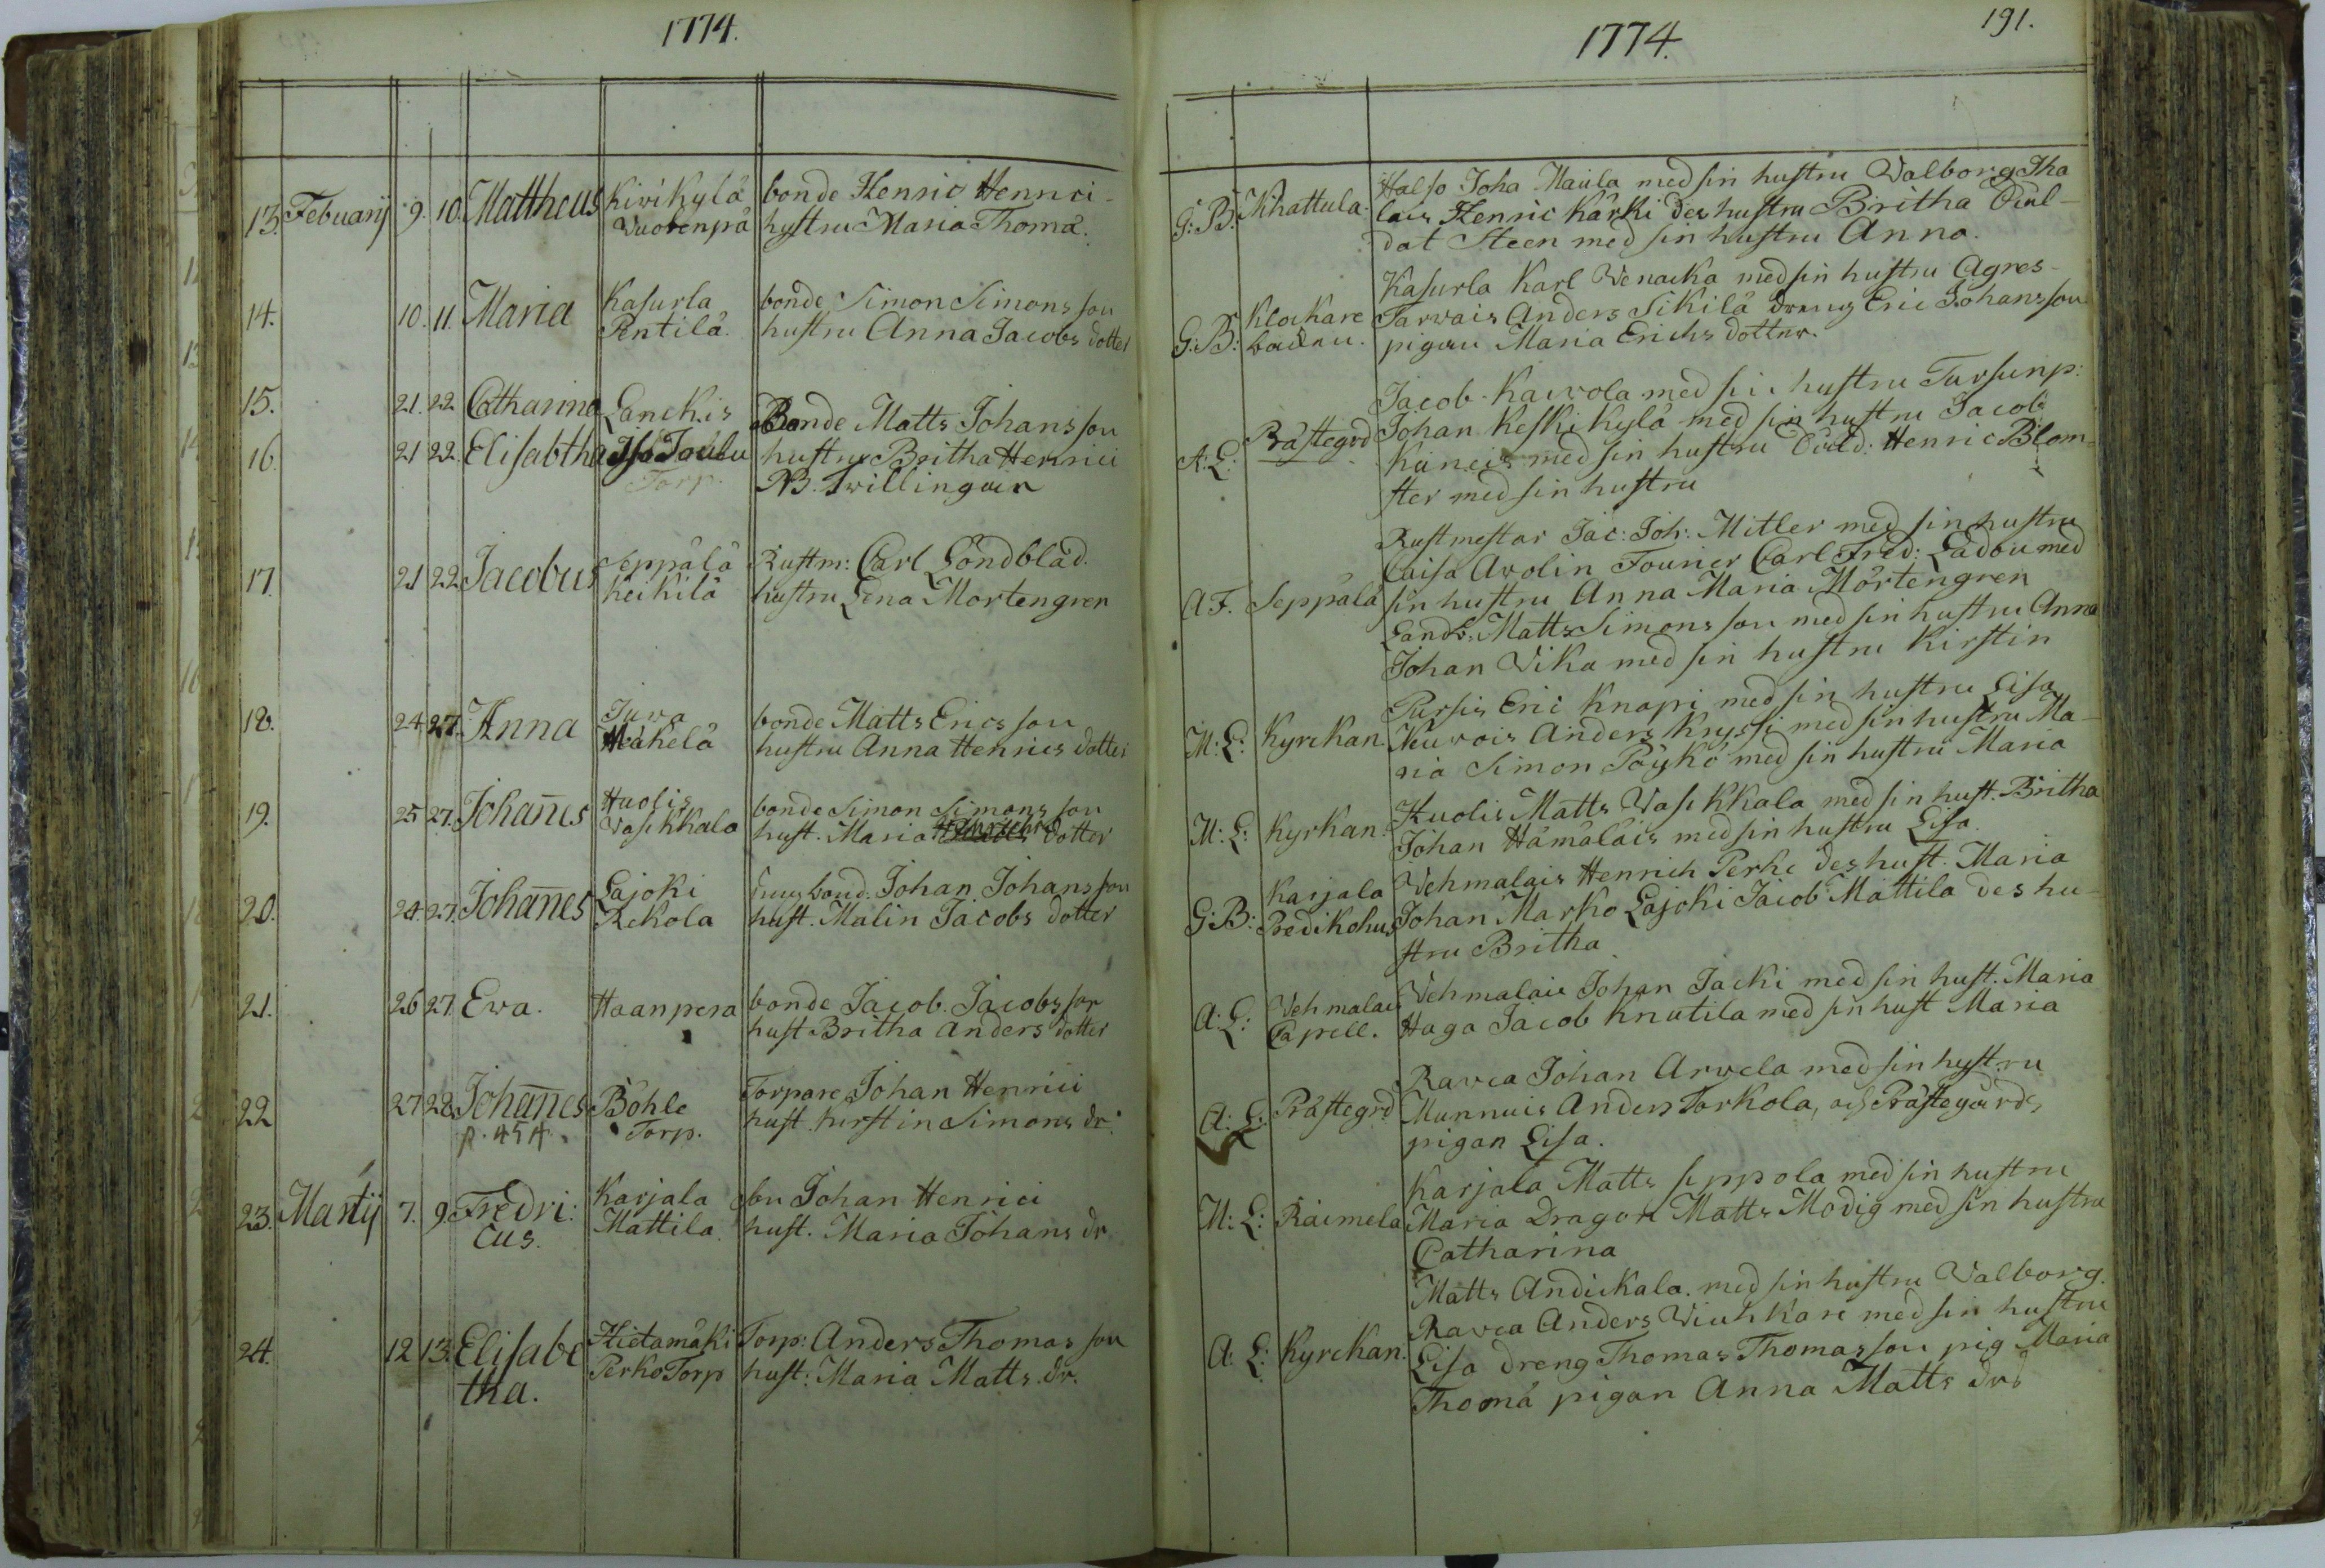 1774.
13. Febuarij 9. 10. Mattheus Kirikylä bonde Henric Hennci-
Vuobenpä hustru Maria Thomæ.
14. 10. 11. Maria Kasurla bonde Simon Simons son
Pentilä. hustru Anna Jacobs dotter
15. 21. 22 Catharina Lanckis Bonde Matts Johans son
16. 21 22. Elisabtha Iso Joulu hustru Britha Henrici
Torp. NB. Twillingar
17. 21 22 Jacobus Seppälä Rustm: Carl Löndblad.
Heikilä hustru Lena Mortengren
18. 24 27. Anna Juva bonde Matts Erics son
Mäkelä hustru Anna Henrics dotter
19. 25 27. Johan̄es Huolis bonde Simon Simons son
Vasikkala hust. Maria dotter
20. 24. 27. Johan̄es Lajoki bond. Johan Johans son
Rekola hust. Malin Jacobs dotter
21. 26 27 Ewa. Haanpera bonde Jacob Jacobs son
hust Britha Anders dotter
22 27 28. Johan̄es Böhle Torpare Johan Henrici
p. 454. Torp. hust Kirstin Simons dr.
23. Martij 7. 9. Fredri: Karjala bn Johan Henrici
cus. Mattila. hust. Maria Johans dr
24. 12 13. Elisabe Hietamäki Torp: Anders Thomas son
tha. Perko Torp hust: Maria Matts dr.
1774. 191.
Halso Joha Maula med sin hustru Valborg Tha
G: B: Khattula. lais Henric Kärki des hustru Britha
dat Steen med sin hustru Anna.
Kasurla Karl Venacka med sin hustru Agnes-
Klockare Tarvais Anders Sikilä dreng Eric Johans son
G: B: pigan Maria Erichs dotter.
Jacob Kaivola med sin hustru Tursunp:
Prästegrd Johan Keskikylä med sin hustru Jacob
A: L: med sin hustru Henric Blom-
ster med sin hustru
Rustmestar Jac: Joh: Mitler med sin hustru
Caisa Avolin Fourier Carl Fred: Ladou med
A F. Seppälä sin hustru Anna Maria Mörtengren
Matts Simons son med sin hustru Anna
Johan Vika med sin hustru Kirstin
Pursis Eric Knapi med sin hustru Lisa
M: L: Kyrckan. Neuvois Anders Kryssi med sin hustru Ma-
ria Simon Pöykö med sin hustru Maria
Huolis Matts Vasikkala med sin hust. Britha
M: L: Kyrkan. Johan Hämäläis med sin hustru Lisa.
Karjala Vehmalais Henrich Perke des hust. Maria
G: B: Predikohus Johan Marko Lajoki Jacob Mattila des hu-
stru Britha
Vehmalais Vehmalais Johan Jacki med sin hust. Maria
A: L: Capell. Haga Jacob Knutila med sin hust Maria
Ravea Johan Arvela med sin hustru
A: L: Prästegrd Munnuis Anders Torkola, och Prästegårds
pigan Lisa.
Karjala Matts Seppola med sin hustru
M: L: Raimela Maria Dragon Matts Modig med sin hustru
Catharina
Matts Andickala med sin hustru Valborg.
Ravea Anders Viuhkare med sin hustru
A: L: Kyrckan. Lisa dreng Thomas Thomas son pig Maria
Thomä pigan Anna Matts dr